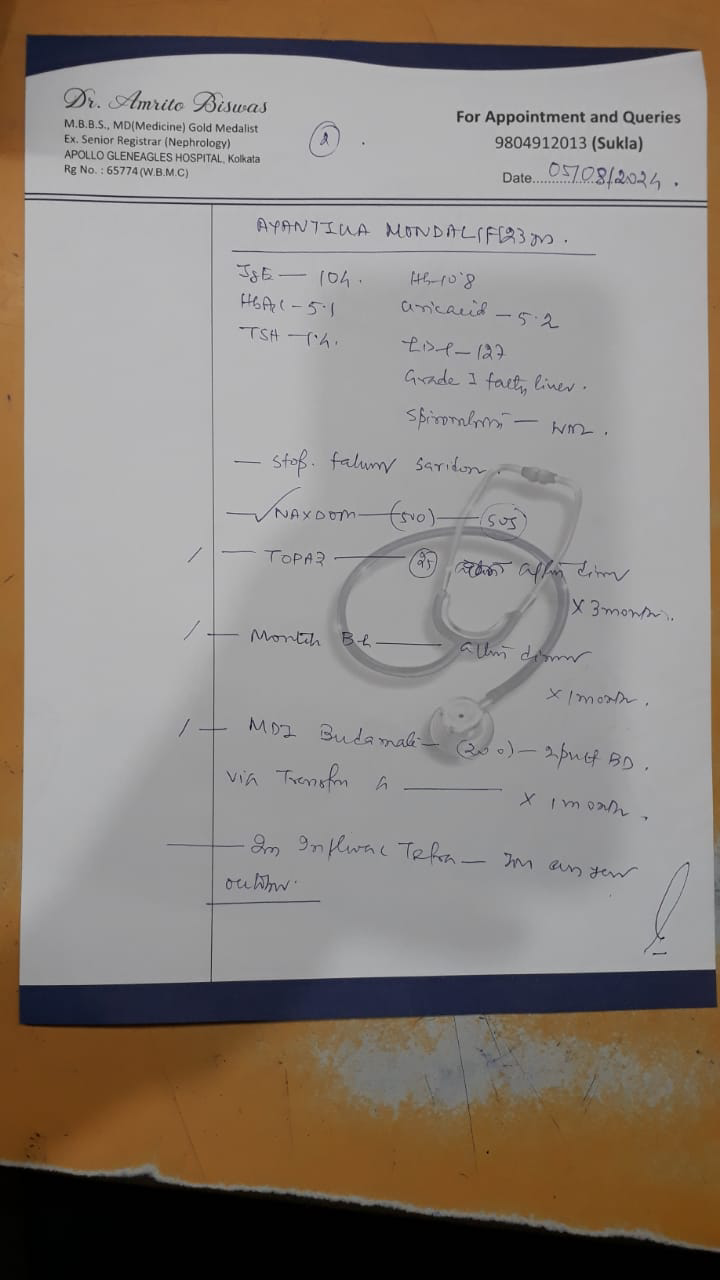 Dr. Amrito Biswas
M.B.B.S., MD(Medicine) Gold Medalist
Ex. Senior Registrar (Nephrology)
APOLLO GLENEAGLES HOSPITAL, Kolkata
Rg No. : 65774 (W.B.M.C)
2
For Appointment and Queries
9804912013 (Sukla)
Date 05/08/2024.
AYANTIKA MONDAL (F) 23
IgE — 104. Hb-10.8
HbA1c - 5.1 uric acid — 5.2
TSH — 1.4. LDL - 127
Grade I fatty liver.
Spirometry — WNL.
— stop. Saridon.
— ✓ NAXDOM — (500) — SOS
/ — TOPAZ — 25 after dinner
X 3 month.
/ — Montek — after dinner
X 1 month.
/ — MDI Budamate — (200) — 2 puff BD.
via X 1 month.
— Influvac Tetra — every year